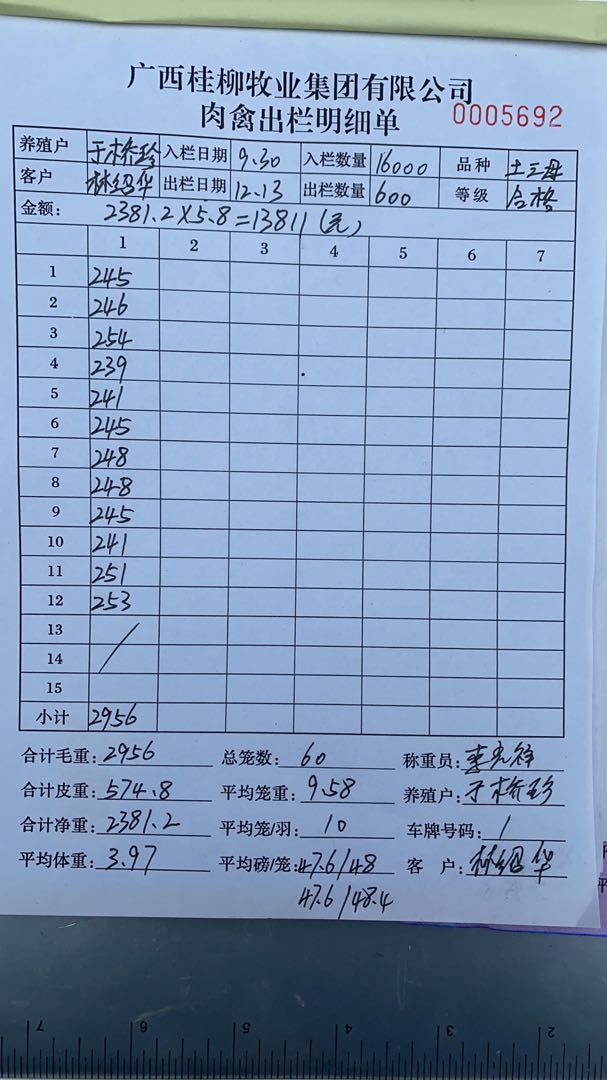 广西桂柳牧业集团有限公司
肉禽出栏明细单 0005692
养殖户 于桥珍 入栏日期 9.30 入栏数量 16000 品种 土三母
客户 林绍华 出栏日期 12.13 出栏数量 600 等级 合格
金额: 2381.2×5.8=13811(元)
1 2 3 4 5 6 7
1 245
2 246
3 254
4 239
5 241
6 245
7 248
8 248
9 245
10 241
11 251
12 253
13
14 /
15
小计 2956
合计毛重: 2956 总笼数: 60 称重员:
合计皮重: 574.8 平均笼重: 9.58 养殖户: 于桥珍
合计净重: 2381.2 平均笼/羽: 10 车牌号码: /
平均体重: 3.97 平均磅/笼: 47.6/48 客 户: 林绍华
47.6/48.4
7 6 5 4 3 2